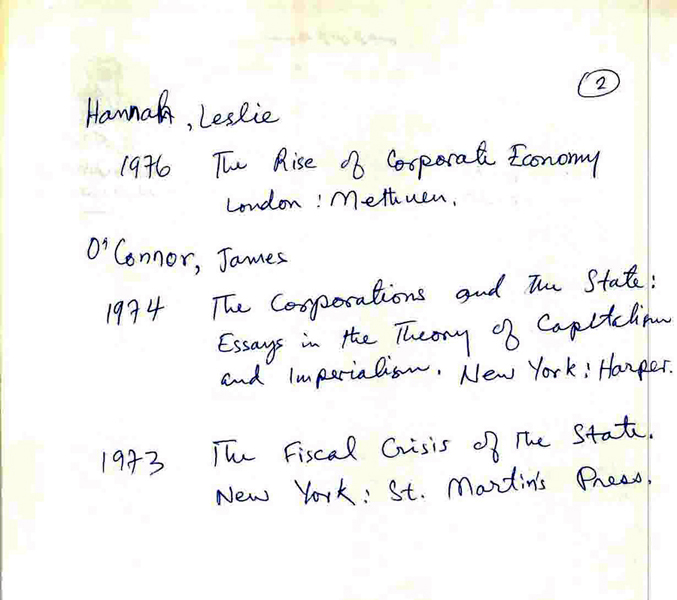 2
Hannah, Leslie
1976 The Rise of Corporate Economy
London : Methuen.
O'Connor, James
1974 The Corporations and the State :
Essays in the Theory of Capitalism
and Imperialism. New York : Harper.
1973 The Fiscal Crisis of the State.
New York : St. Martin's Press.